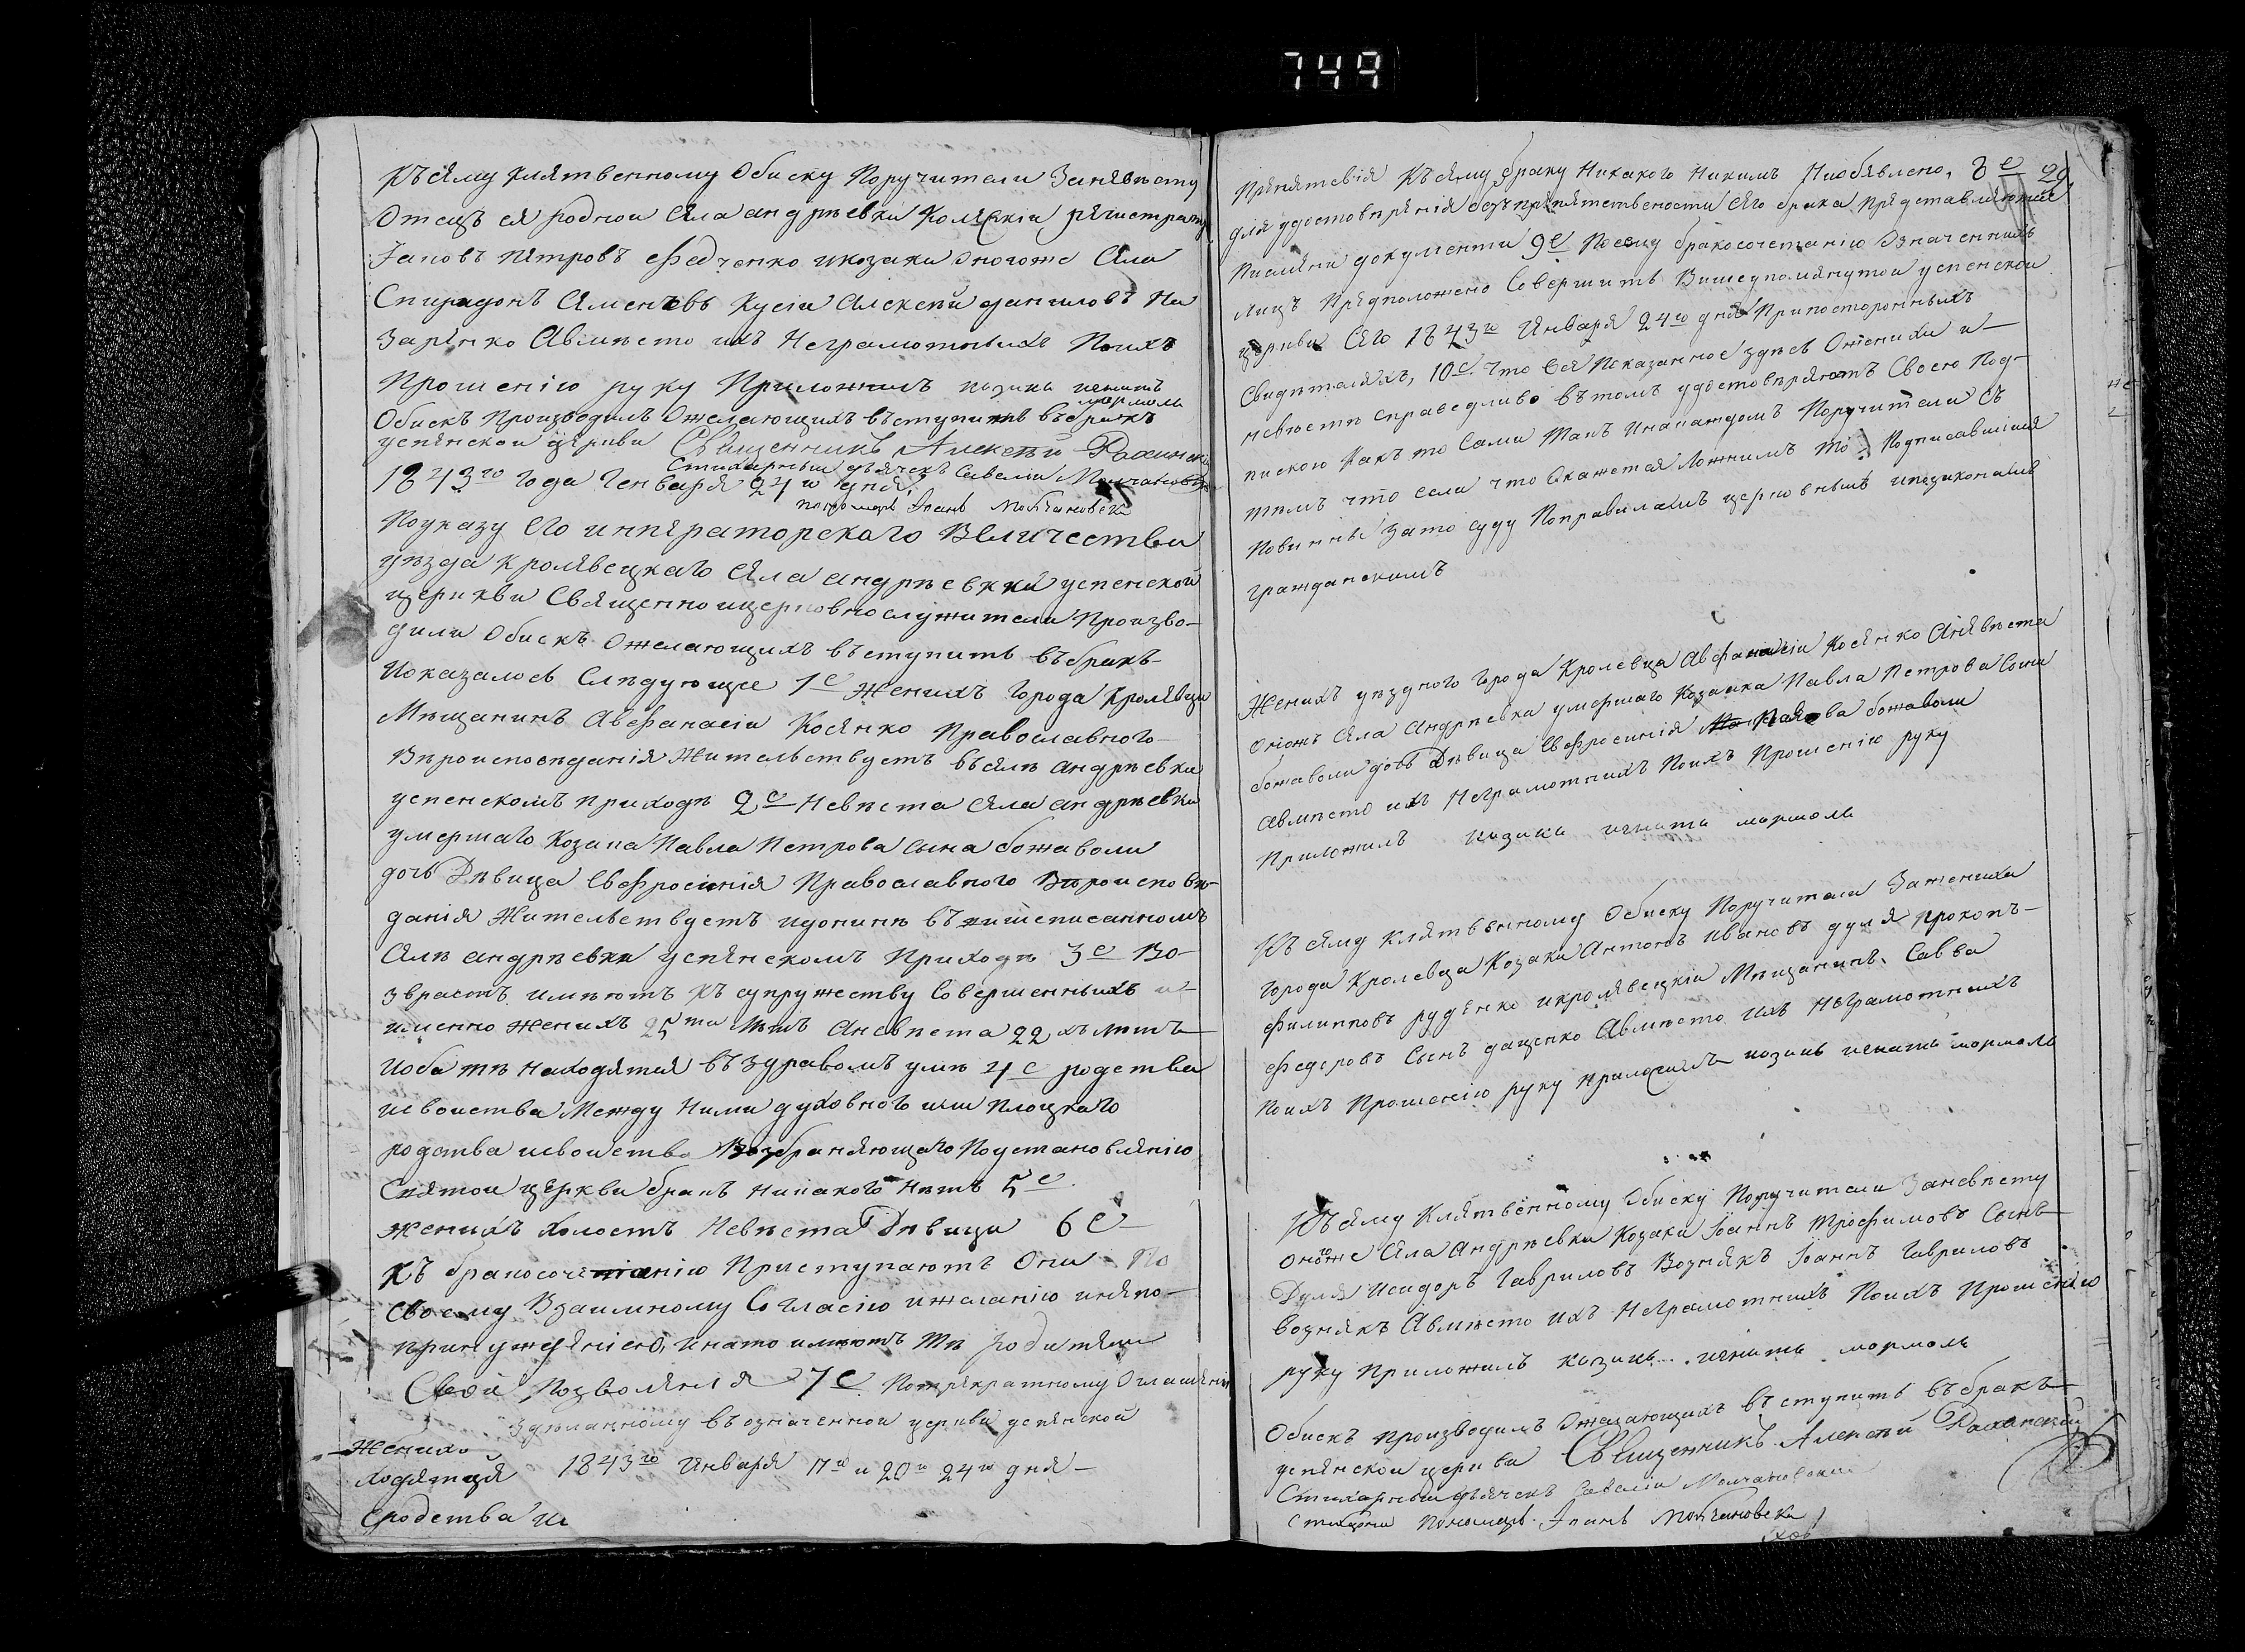 749
Къ сяму клятвенному обиску поручители за нявѣсту
Отецъ ея родной сяла андрѣевки Колязкій рягистраторъ
Іаковъ пятровъ федченко и козаки оногоже сяла
Спиридонъ сяменовъ алексѣй даниловъ На
зарянко авмѣсто ихъ неграмотныхъ по ихъ
прошенію руку приложилъ козакъ игнатъ
мормоль
Обискъ производилъ ожелающихъ въступить въ бракъ
успянской цяркви Священникъ Алексѣй
Стихарный дьячекъ Савелій Молчановскій
1843го года Генваря 24го дня,
пономарь Іоанъ Молчановскій
По указу его императорскаго Величества
уѣзда кролявецкаго сяла андрѣевки успенской
церкви Священно и церковнослужители произво-
дили обискъ ожелающихъ въступить въ бракъ-
и оказалось слѣдующее 1е жениxъ города кролявца
Мѣщанинъ Авфанасій Косянко православного-
вѣроисповѣданія жительствуетъ въ сялѣ андрѣевки
успенскомъ приходѣ 2е невѣста сяла андрѣевки
умершаго козака Павла Петрова сына божаволи
дочь Дѣвица Евфросинія православного вѣроисповѣ-
данія жительствуетъ и донинѣ въ вишеписанномъ
сялѣ андрѣевки успянскомъ приходѣ 3е во-
зврастъ имѣютъ къ супружеству совершенныхъ и-
именно женихъ 25ти лѣтъ а невѣста 22хъ лѣтъ
и оба тѣ находятся въ здравомъ умѣ 4е родства
и своиства между ними духовного или плоцкаго
родства и своиства возбраняющаго по установлянію
святои цяркви бракъ никакого нѣтъ 5е
женихъ холостъ невѣста Дѣвица 6е
къ бракосочетанію приступаютъ они по
своему взаимному согласію и желанію и няпо-
принуждянію, и на то имѣютъ тѣ родитяли
свои позволянія 7е по трякратному оглашению
здѣланному въ означенной церкви успянской
1843го Января 17го и 20го 24го дня-
Женихъ
ходятця
сродства и
прянятсвія къ сяму браку никакого никимъ ниобявлено, 8е
29
для удостовѣрянія безъпрянятственности сяго брака прядставляютця
писмяни документи 9е по сему бракосочетанію означеннихъ
лицъ прядположено совершить вишеупомянутой успенской
цяркви сяго 1843го Января 24го дня при посторонныхъ
свидѣтеляхъ, 10е что вся показанное здѣсь ожениxи и-
невѣсти справедливо вътомъ удостовѣряютъ своею под-
пискою какъ то сами такъ и накаждомъ поручители съ
тѣмъ что если что окажется ложнимъ то подписавшіися
повинны за то суду по правиламъ церковнымъ и по законамъ
гражданскимъ
Женихъ уѣздного города Кролевца Авфанасій Косянко а нявѣста
сяла Андрѣевки умершаго козака Павла Петрова сына
божаволи дочь Дѣвица Евфросинія божаволи
авмѣсто ихъ неграмотнихъ по ихъ прошенію руку
приложилъ козакъ игнатъ мормоль
Къ сяму клятвенному обиску поручители за жениxа
города Кролевца козаки антонъ ивановъ дуля прокопъ-
филиповъ рудянко и кролявецкій мѣщанинъ Савва
федоровъ сынъ даценко авмѣсто ихъ неграмотнихъ
по ихъ прошенію руку приложилъ козакъ игнатъ мормоль
Къ сяму клятвенному обиску поручители за невѣсту
оногоже сяла андрѣевки козаки Іоаннъ трофимовъ сынъ
Дуля исидоръ гавриловъ Вознякъ Іоаннъ гавриловъ
вознякъ авмѣсто ихъ неграмотнихъ по ихъ прошенію
руку приложилъ козакъ игнатъ мормоль
Обискъ производилъ ожелающихъ въступить въ бракъ
успянской церкви Священникъ Алексѣй
Стихарный дьячекъ Савелій Молчановскій
Стихарный пономарь Іоанъ Молчановскій